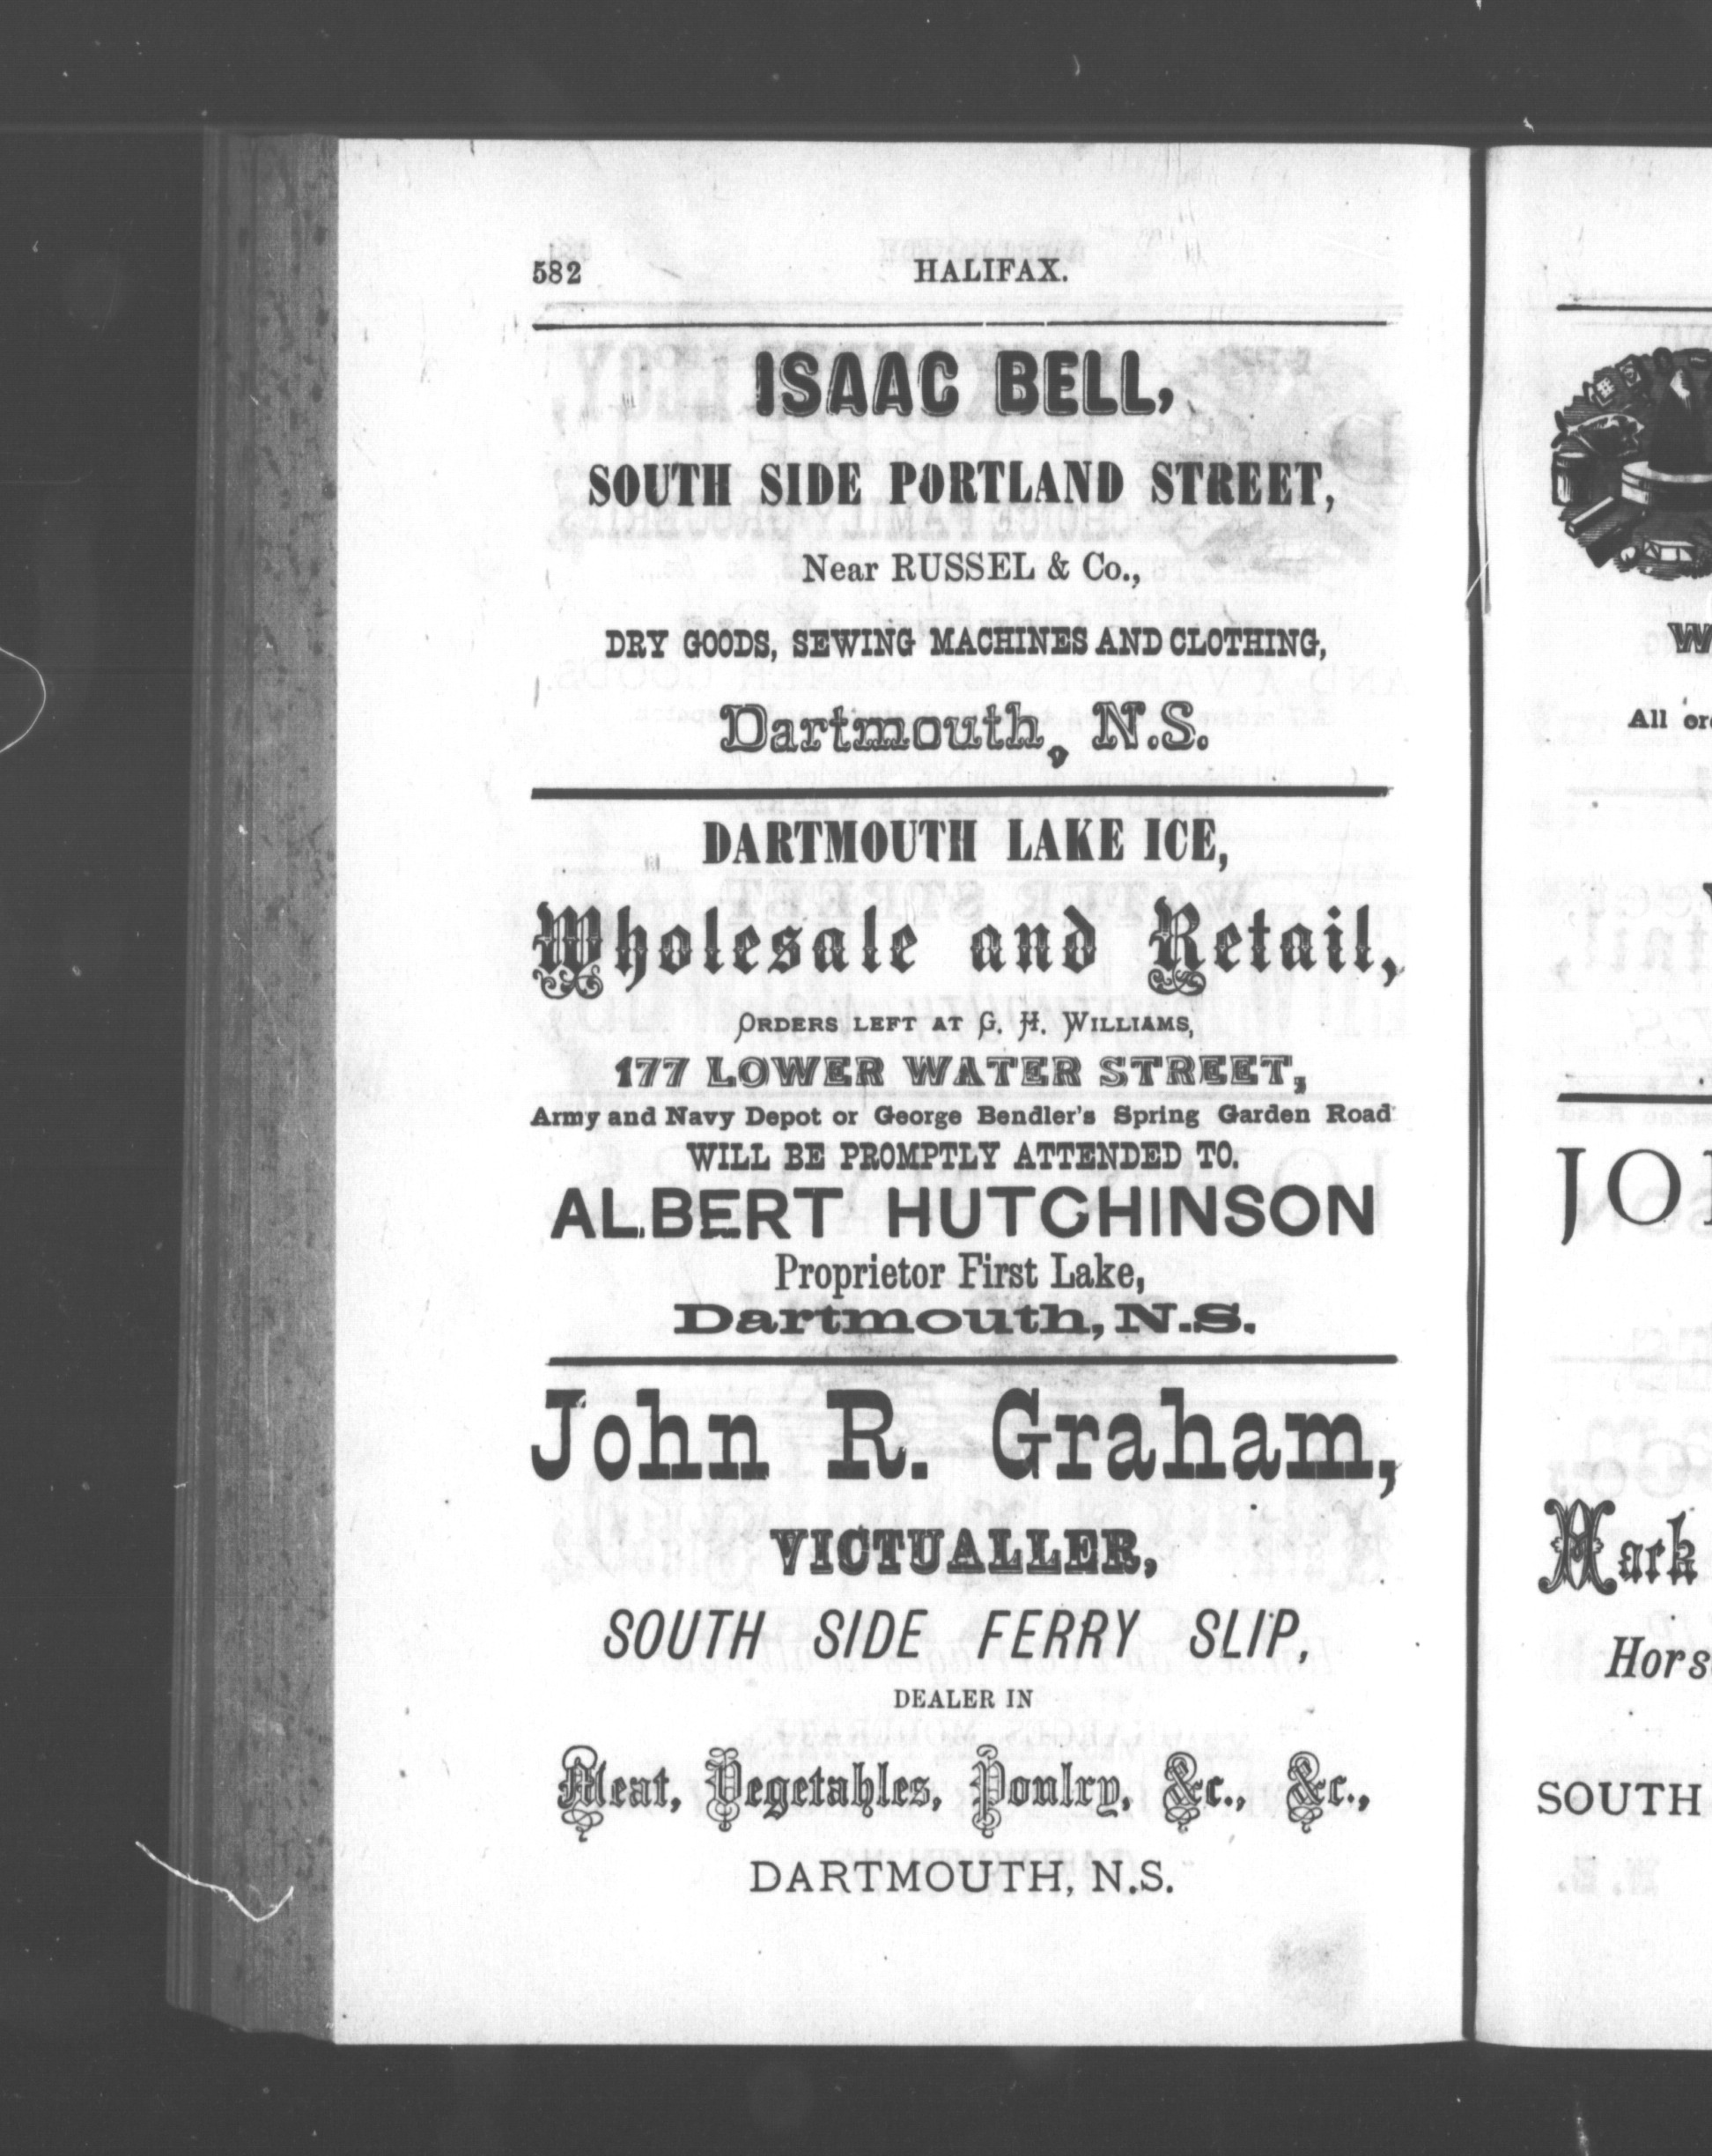 582 HALIFAX.
ISAAC BELL,
SOUTH SIDE PORTLAND STREET,
Near RUSSEL & Co.,
DRY GOODS, SEWING MACHINES AND CLOTHING,
Dartmouth, N.S.
DARTMOUTH LAKE ICE,
Wholesale and Retail,
ORDERS LEFT AT G. H. WILLIAMS,
177 LOWER WATER STREET,
Army and Navy Depot or George Bendler's Spring Garden Road
WILL BE PROMPTLY ATTENDED TO.
ALBERT HUTCHINSON
Proprietor First Lake,
Dartmouth, N.S.
John R. Graham,
VICTUALLER,
SOUTH SIDE FERRY SLIP,
DEALER IN
Meat, Vegetables, Poulry, &c., &c.,
DARTMOUTH, N.S.
All
Mark
SOUTH